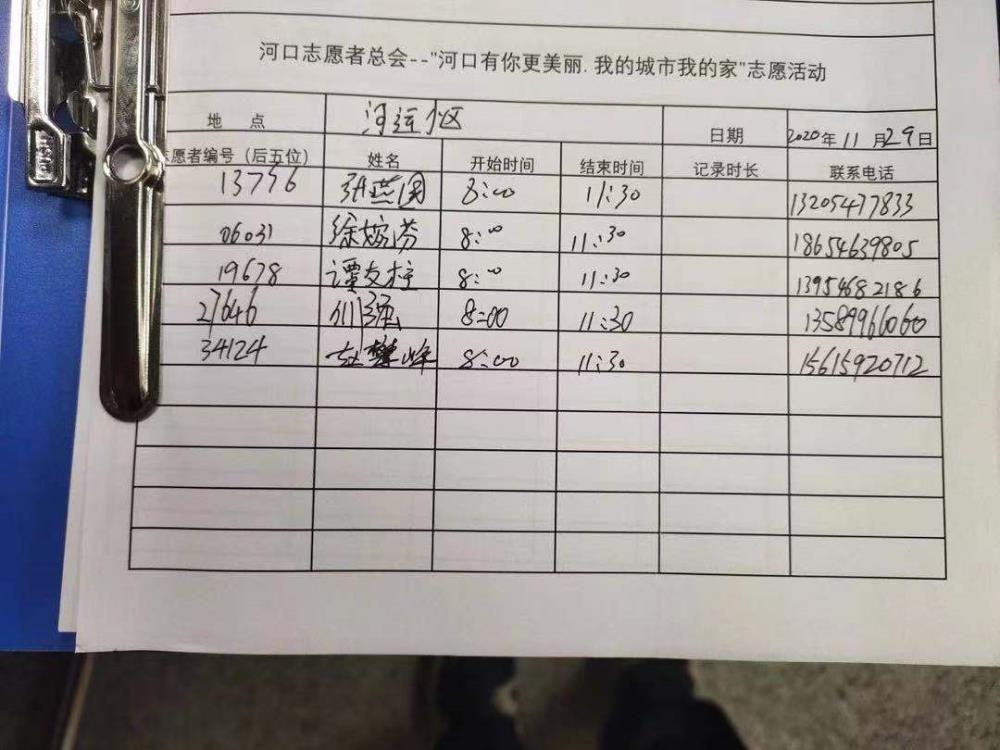 河口志愿者总会--"河口有你更美丽.我的城市我的家"志愿活动
地 点 河运小区 日期 2020年11月29日
愿者编号（后五位） 姓名 开始时间 结束时间 记录时长 联系电话
13756 张燕国 8:00 11:30 13205477833
06031 徐嫁芬 8:00 11:30 18654639805
19678 谭友柱 8:00 11:30 13954682186
27646 强 8:00 11:30 13589966060
34124 赵攀峰 8:00 11:30 15615920712